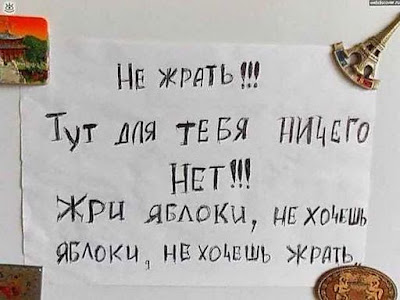 Не жрать!!!
Тут для тебя ничего
нет!!!
Жри яблоки, не хочешь
яблоки, не хочешь жрать.